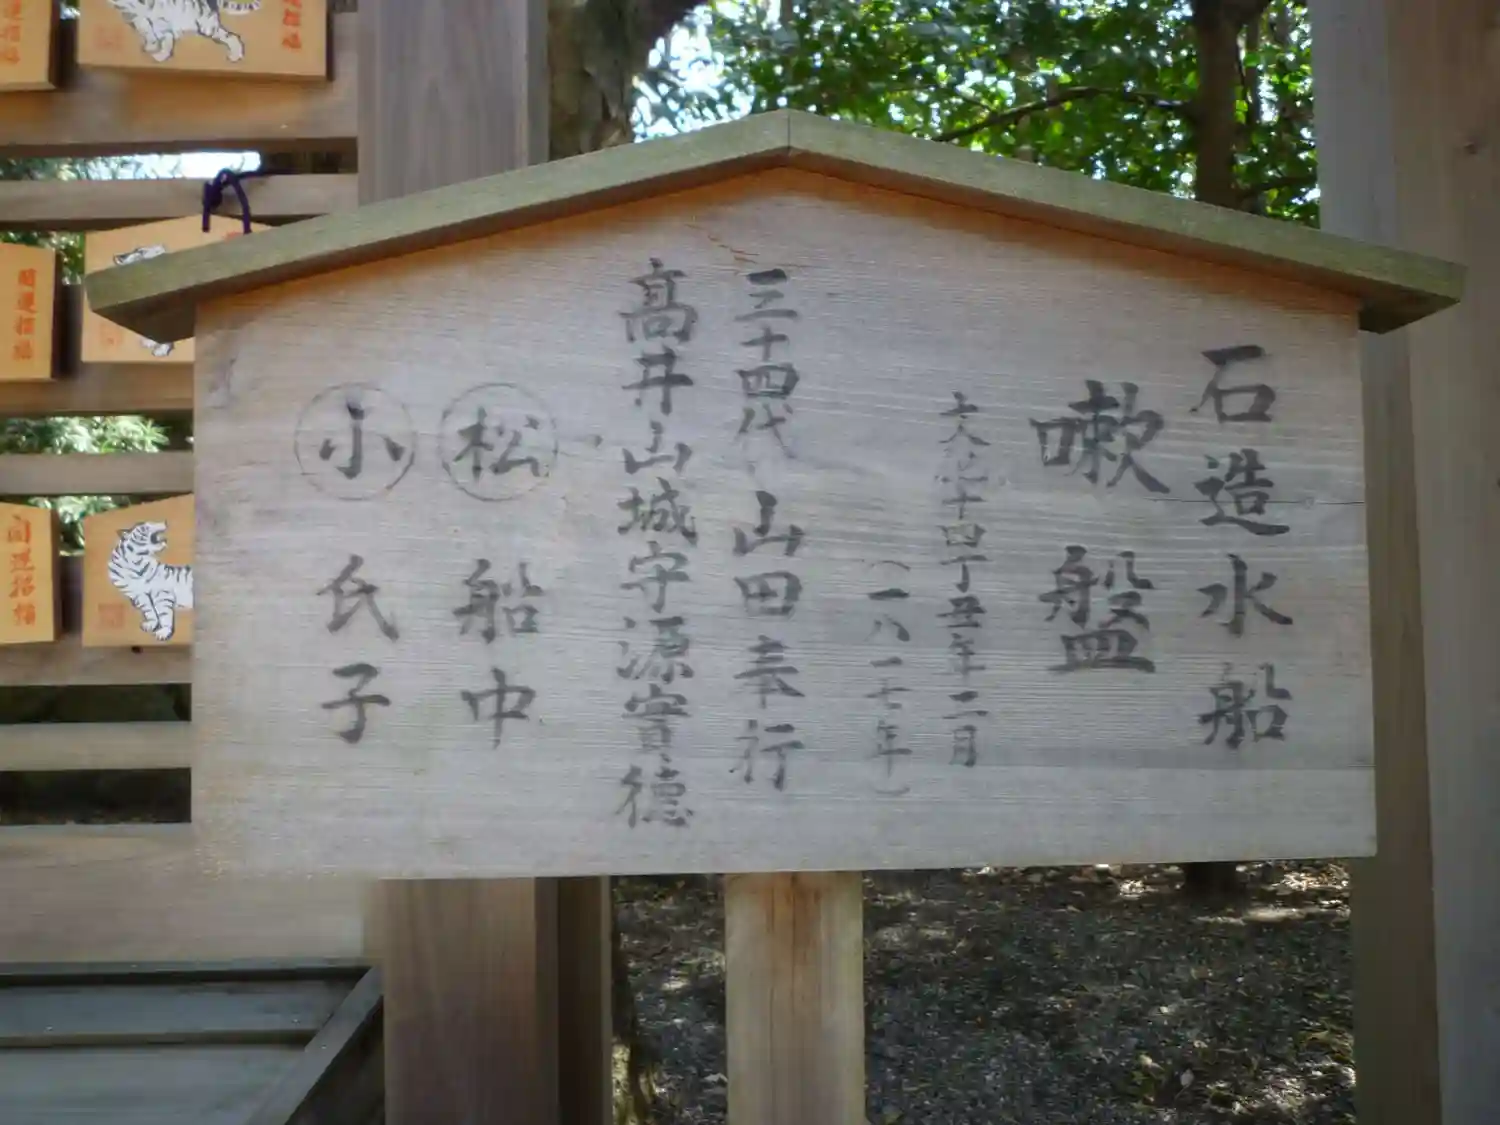 石造水船
嗽盤
文化十四丁丑年二月
（一八一七年）
三十四代山田奉行
髙井山城守源實德
松船中
小氏子
開運招福
開運招福